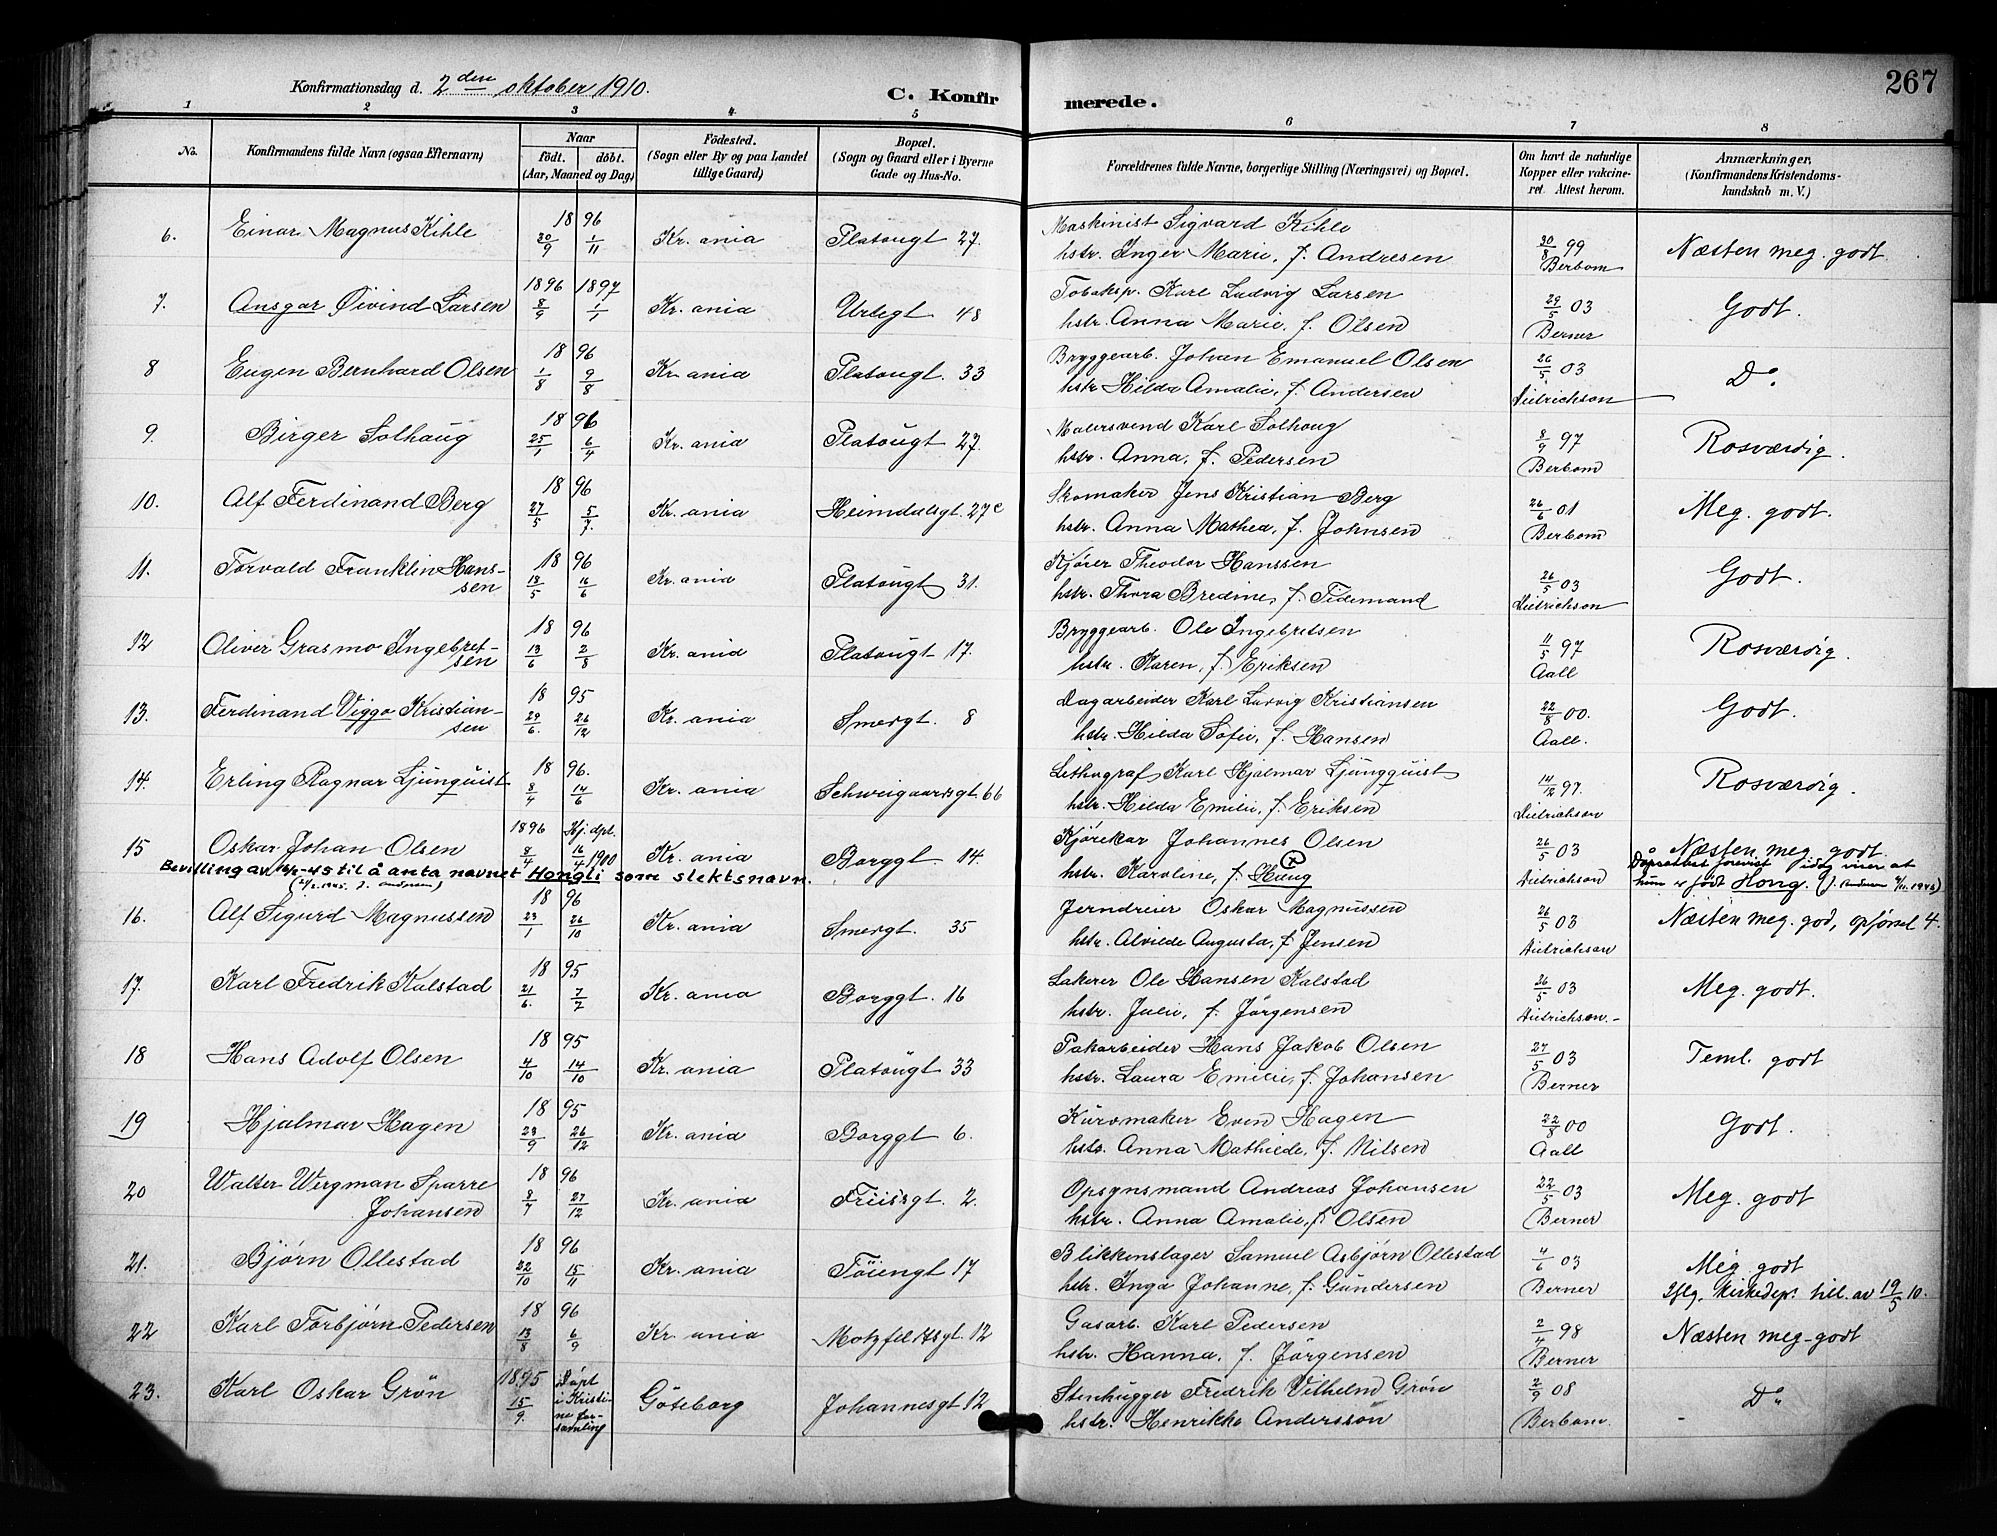 267
Konfirmationsdag d. 2den oktober 1910.
C. Konfir merede.
1 2 3 4 5 6 7 8
No.
Konfirmandens fulde Navn (ogsaa Efternavn)
Naar
födt. döbt.
(Aar, Maaned og Dag)
Födested.
(Sogn eller By og paa Landet
tillige Gaard)
Bopæl.
(Sogn og Gaard eller i Byerne
Gade og Hus-No.
Forældrenes fulde Navne, borgerlige Stilling (Næringsvei) og Bopæl.
Om havt de naturlige
Kopper eller vakcine-
ret. Attest herom.
Anmærkninger,
(Konfirmandens Kristendoms-
kundskab m. V.)
6. Einar Magnus Kihle 18 96 30/9 1/11 Kr.ania Platougt 27 Maskinist Sigvard Kihle
hstr. Inger Marie, f. Andresen 30/8 99 Berbom Næsten meg. godt
7. Ansgar Öivind Larsen 1896 1897 8/9 1/1 Kr.ania Urtegt 48 Tobaksp. Karl Ludvig Larsen
hstr. Anna Marie, f. Olsen 29/5 03 Berner Godt.
8 Eugen Bernhard Olsen 18 96 1/8 9/8 Kr.ania Platougt. 33 Bryggearb. Johan Emanuel Olsen
hstr. Hilda Amalie, f. Andersen 26/5 03 Dietrichson Do.
9. Birger Solhaug 18 96 25/1 6/4 Kr.ania Platougt 27. Malersvend Karl Solhoug
hstr. Anna, f. Pedersen 8/9 97 Berbom Rosværdig.
10. Alf Ferdinand Berg 18 96 27/5 5/7 Kr.ania Heimdalsgt. 27c Skomaker Jens Kristian Berg
hstr. Anna Mathea, f. Johnsen 26/6 01 Berbom Meg. godt.
11. Torvald Franklin Hans-
sen 18 96 13/5 16/6 Kr.ania Platougt 31. Kjörer Theodor Hanssen
hstr. Thora Bredine, f. Tidemand 26/5 03 Dietrichson Godt.
12 Oliver Grasmo Ingebret-
sen 18 96 13/6 2/8 Kr.ania Platougt 17. Bryggearb. Ole Ingebretsen
hstr. Karen, f. Eriksen 11/5 97 Aall Rosværdig.
13. Ferdinand Viggo Kristian-
sen 18 95 29/6. 26/12 Kr.ania Smergt. 8 Dagarbeider Karl Ludvig Kristiansen
hstr. Hilda Sofie, f. Hansen 22/8 00. Aall. Godt.
14. Erling Ragnar Ljunquist 18 96. 8/4 14/6 Kr.ania Schweigaardsgt. 66 Lithograf Karl Hjalmar Ljungquist
hstr. Hilda Emilie, f. Eriksen 14/12 97. Dietrichson Rosværdig.
15 Oskar Johan Olsen 1896 Hj. dpt. 8/4 16/4 1900 Kr.ania Borggt. 14. Kjörekar Johannes Olsen
hstr. Karoline, f. Haug 26/5 03 Dietrichson Næsten meg. godt
Bevilling av -45 til å anta navnet Hongli som slektsnavn.
hun er født Hong.
16. Alf Sigurd Magnussen 18 96 23/1 26/10 Kr.ania Smergt. 35 Jerndreier Oskar Magnussen
hstr. Alvilde Augusta, f. Jensen 26/5 03 Dietrichson Næsten meg. god, opförsel 4.
17. Karl Fredrik Kalstad 18 95 21/6. 7/7 Kr.ania Borggt. 16 Lakerer Ole Hansen Kalstad
hstr. Julie, f. Jörgensen 26/5 03 Dietrichson. Meg. godt.
18 Hans Adolf Olsen 18 95 4/10 14/10 Kr.ania Platougt 33 Pakarbeider Hans Jakob Olsen
hstr. Laura Emilie, f. Johansen 27/5 03 Berner Teml. godt
19 Hjalmar Hagen 18 95 23/9 26/12 Kr.ania Borggt 6. Kurvmaker Even Hagen
hstr. Anna Mathilde, f. Nilsen 22/8 00 Aall Godt.
20 Walter Wergman Sparre
Johansen 18 96 8/7 27/12 Kr.ania Friisgt. 2. Opsynsmand Andreas Johansen
hstr. Anna Amalie, f. Olsen 22/5 03 Berner Meg. godt
21. Björn Ollestad 18 96 22/10 15/11 Kr.ania Töiengt 17 Blikkenslager Samuel Asbjörn Ollestad
hstr. Inga Johanne, f. Gundersen 4/6 03 Berner Meg. godt
Iflg. Kirkedep. till. av 19/5 10.
22 Karl Torbjörn Pedersen 18 96 13/8 6/9 Kr.ania Motzfeldtsgt. 12 Gasarb. Karl Pedersen
hstr. Hanna, f. Jörgensen 2/4 98 Berner Næsten meg. godt
23. Karl Oskar Grön 1895 15/9. Döpt
i Kristi-
ne för-
samling Göteborg Johannesgt 12 Stenhugger Fredrik Vilhelm Grön
hstr. Henrikke Andersson 2/9 08 Berbom. Do.